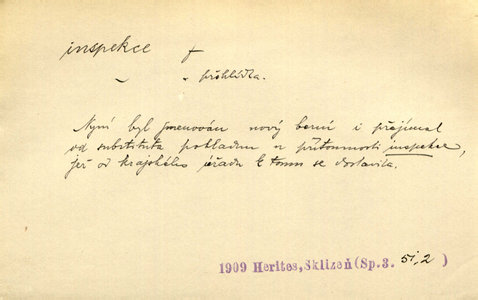 inspekce f
„ prohlídka.
Nyní byl jmenován nový berní i přejímal
od substituta pokladnu v přítomnosti inspekce,
jež od krajského úřadu k tomu se dostavila.
1909 Herites, Sklizeň (Sp.3. 51,2 )